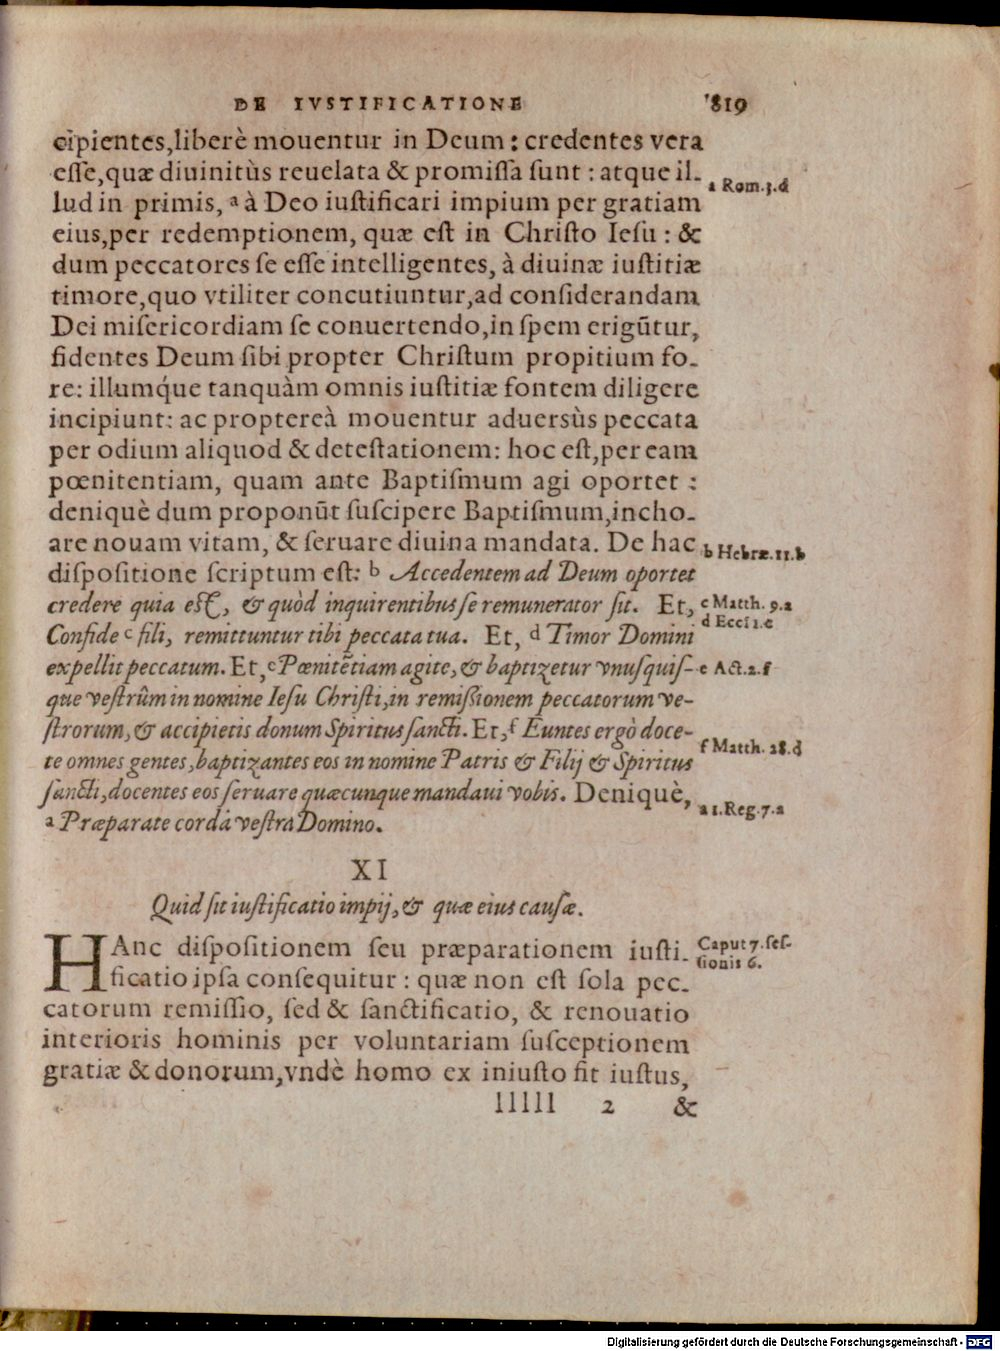 DE IVSTIFICATIONE 819
cipientes,liberè mouentur in Deum: credentes vera
eſſe,quæ diuinitùs reuelata & promiſſa ſunt: atque il-
a Rom.3.d
lud in primis, a à Deo iuſtificari impium per gratiam
eius,per redemptionem, quæ eſt in Chriſto Ieſu: &
dum peccatores ſe eſſe intelligentes, à diuinæ iuſtitiæ
timore,quo vtiliter concutiuntur,ad conſiderandam
Dei miſericordiam ſe conuertendo,in ſpem erigũtur,
fidentes Deum ſibi propter Chriſtum propitium fo-
re: illumq́ue tanquàm omnis iuſtitiæ fontem diligere
incipiunt: ac proptereà mouentur aduersùs peccata
per odium aliquod & deteſtationem: hoc eſt,per eam
pœnitentiam, quam ante Baptiſmum agi oportet:
deniquè dum proponũt ſuſcipere Baptiſmum,incho-
are nouam vitam, & ſeruare diuina mandata. De hac
b Hebræ.11.b
diſpoſitione ſcriptum eſt: b Accedentem ad Deum oportet
credere quia eſt, & quòd inquirentibus ſe remunerator ſit. Et,
c Matth. 9.a
d Eccl 1.c
Confide c fili, remittuntur tibi peccata tua. Et, d Timor Domini
expellit peccatum. Et, e Pœnitẽtiam agite, & baptizetur vnuſquiſ-
e Act.2.f
que veſtrûm in nomine Ieſu Chriſti,in remiſſionem peccatorum ve-
ſtrorum, & accipietis donum Spiritus ſancti. Et, f Euntes ergò doce-
f Matth. 28.d
te omnes gentes,baptizantes eos in nomine Patris & Filij & Spiritus
ſancti,docentes eos ſeruare quæcunque mandaui vobis. Deniquè,
a 1.Reg.7.a
a Præparate corda veſtra Domino.
XI
Quid ſit iuſtificatio impij, & quæ eius cauſæ.
HAnc diſpoſitionem ſeu præparationem iuſti-
Caput 7. ſeſ-
ſionis 6.
ficatio ipſa conſequitur: quæ non eſt ſola pec-
catorum remiſſio, ſed & ſanctificatio, & renouatio
interioris hominis per voluntariam ſuſceptionem
gratiæ & donorum,vndè homo ex iniuſto fit iuſtus,
lllll 2 &
Digitalisierung gefördert durch die Deutsche Forschungsgemeinschaft - DFG